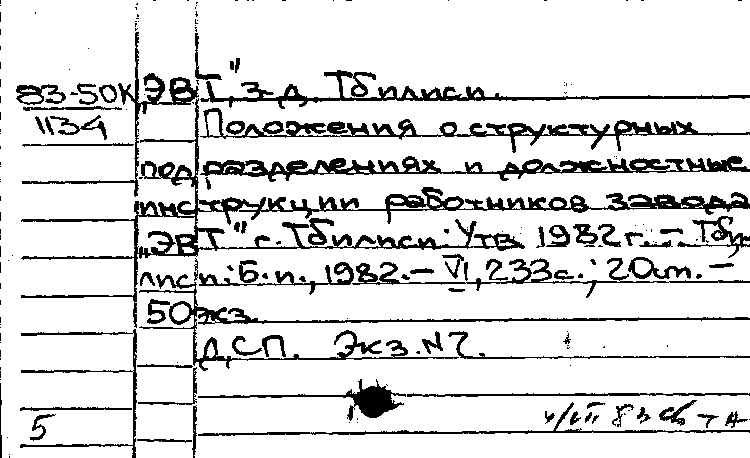 83-50К „ЭВТ", з-д. Тбилиси.
1134 Положения о структурных
подразделениях и должностные
инструкции работников завода
„ЭВТ" г. Тбилиси: Утв. 1982 г. – Тби-
лиси: Б.и., 1982. – VI, 233 с.; 20 см. –
50 экз.
ДСП. Экз. N 7.
5